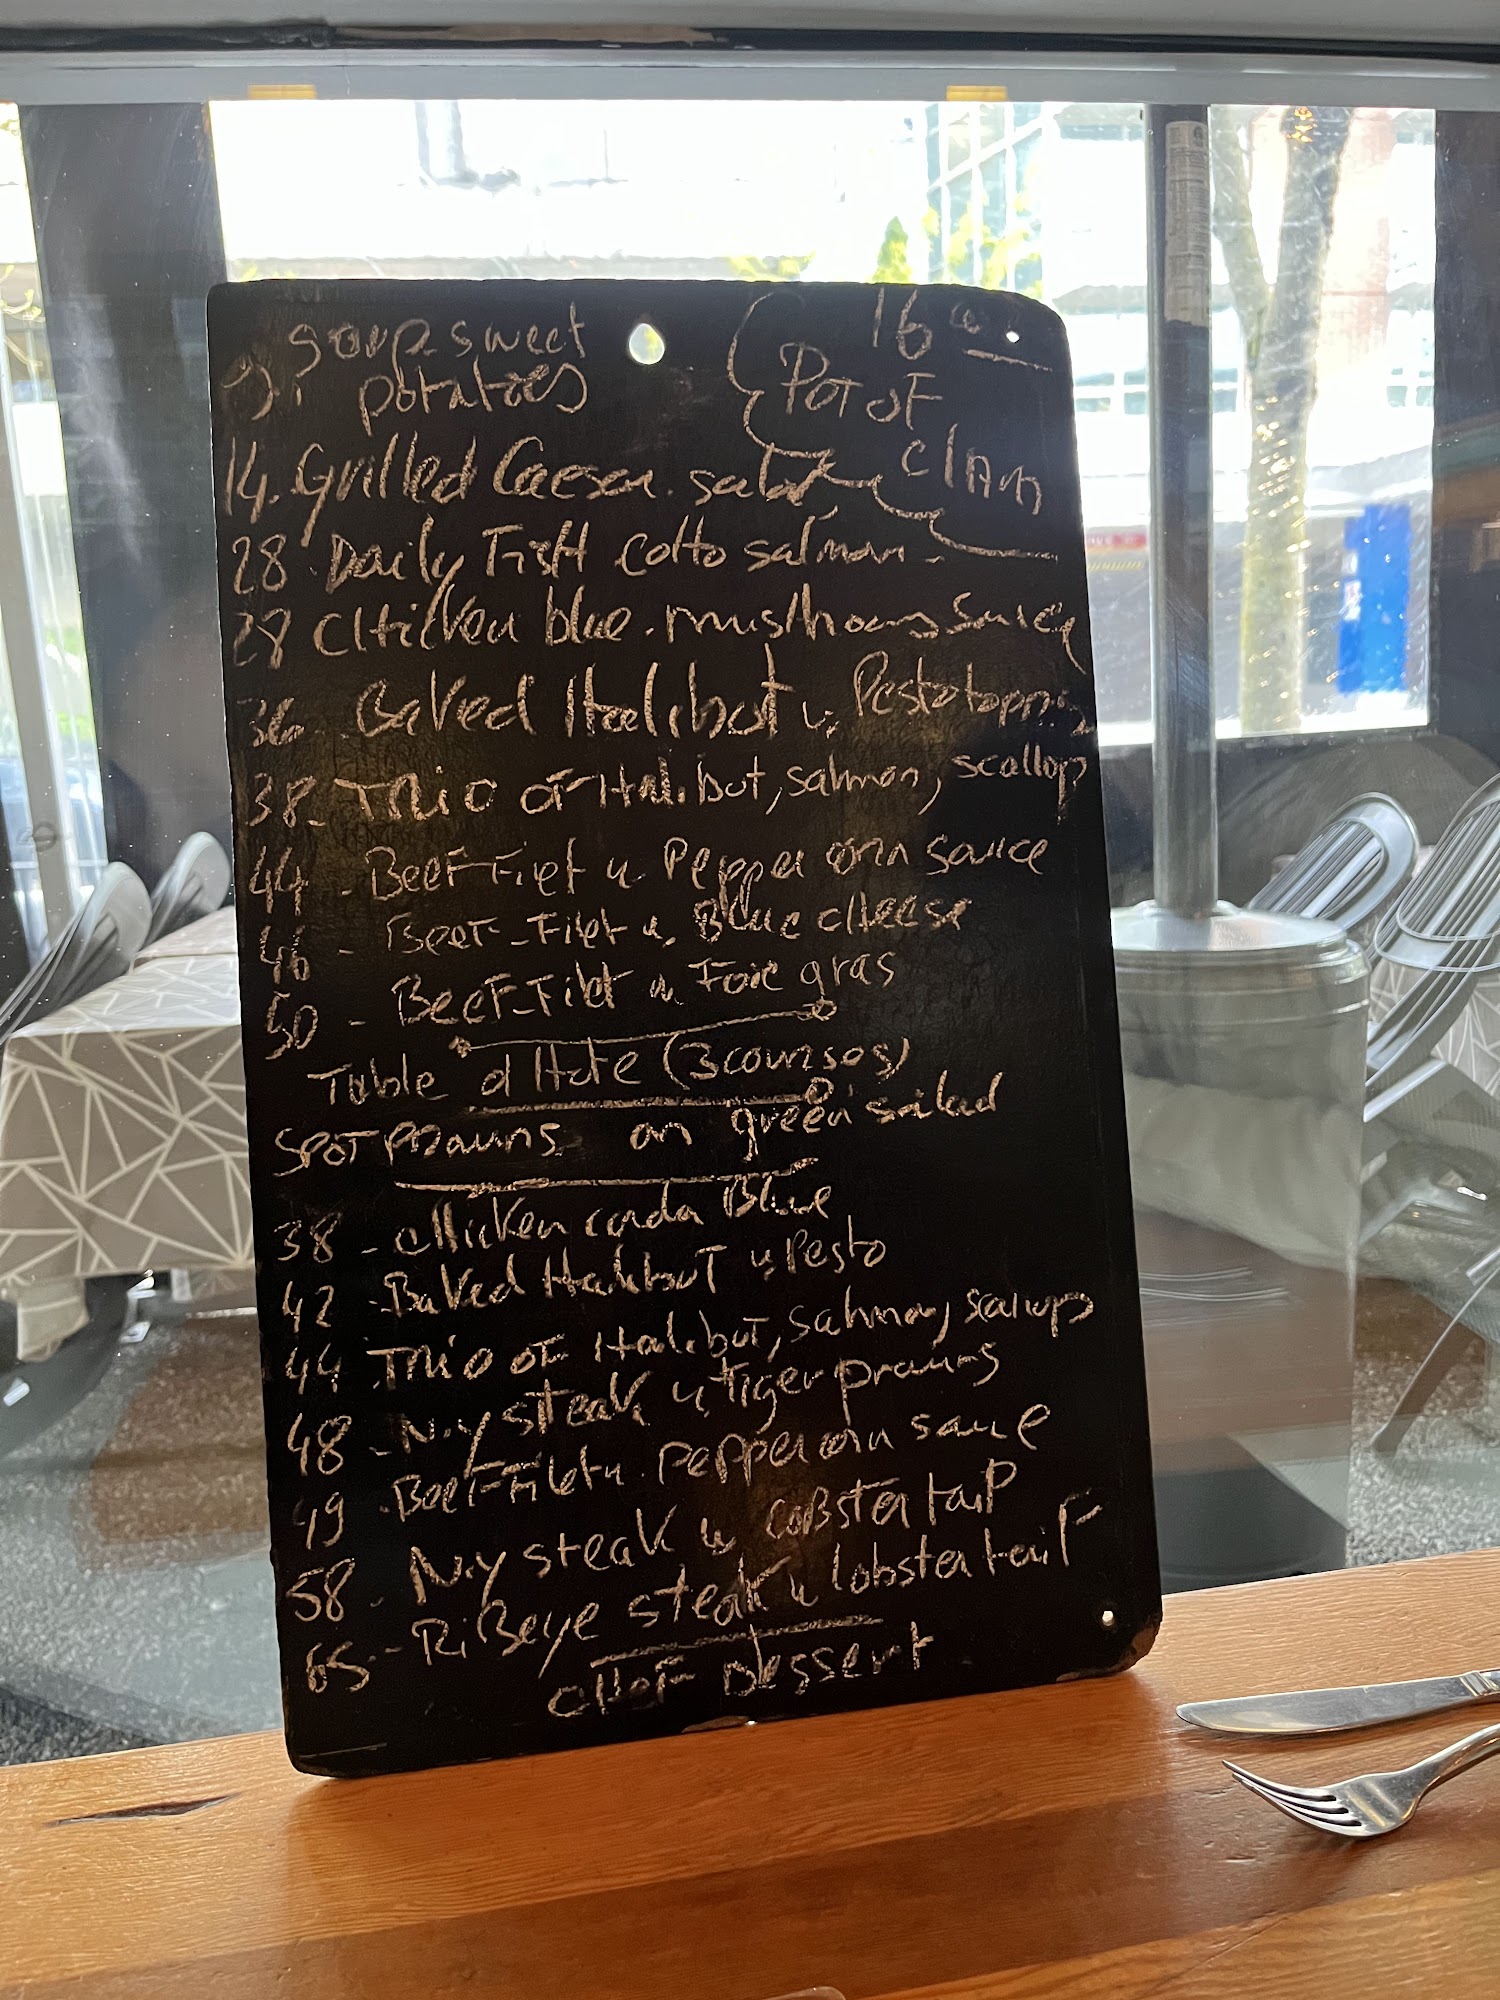 soup sweet
9. potatoes
16
Pot of
clam
14. Grilled Caesar salad
28 Daily Fish Cotto salmon
28 Chicken blue. mushroom saucy
36 Baked Halibut w Pesto topping
38. Trio of Halibut, salmon, scallop
44 - Beef Filet w Peppercorn sauce
46 - Beef-Filet w. Blue cheese
50 - Beef-Filet w Foie gras
Table d Hote (3 courses)
Spot prawns on green salad
38 - chicken corda Blue
42 - Baked Halibut w Pesto
44 Trio of Halibut, salmon, scallops
48 - N.y steak w tiger prawns
49 - Beef Filet w. peppercorn sauce
58 - N.y steak w lobster tail
65 - RiBeye steak w lobster tail
chef Dessert